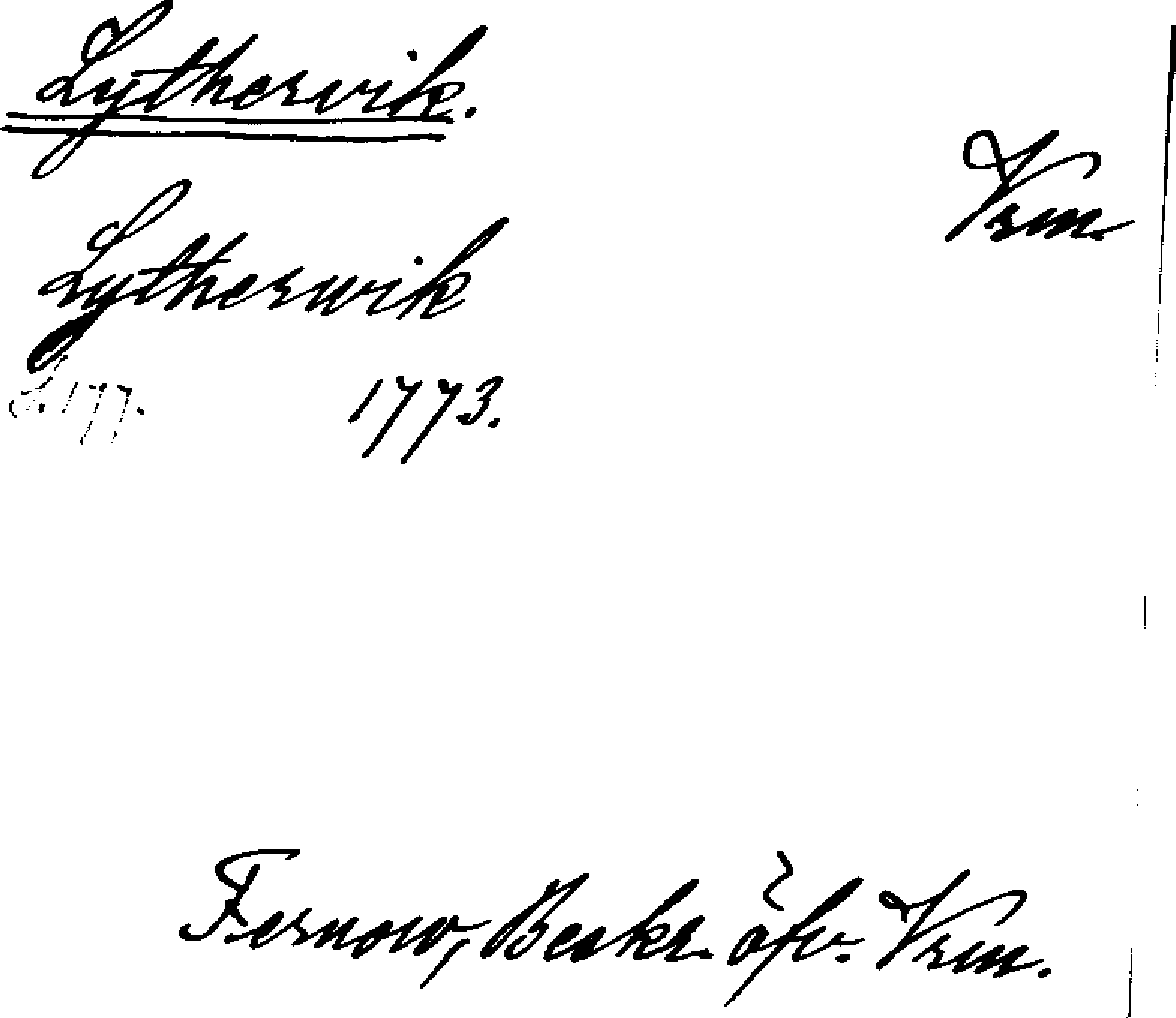 Lythersvik.
Vrm.
Lytherswik
S. 177. 1773.
Fernow, Beskr. öfv. Vrm.